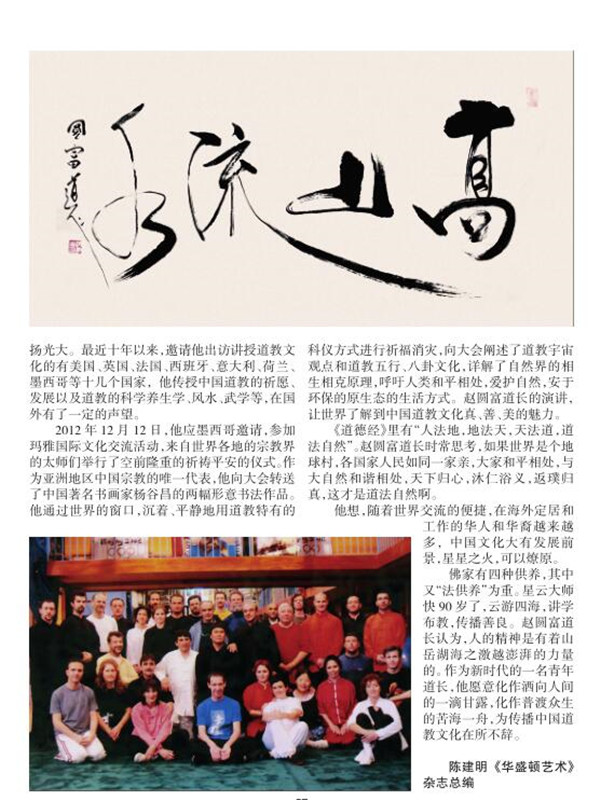 高山流水
圆富道人
扬光大。最近十年以来,邀请他出访讲授道教文
化的有美国、英国、法国、西班牙、意大利、荷兰、
墨西哥等十几个国家,他传授中国道教的祈愿、
发展以及道教的科学养生学、风水、武学等,在国
外有了一定的声望。
2012年12月12日,他应墨西哥邀请,参加
玛雅国际文化交流活动,来自世界各地的宗教界
的太师们举行了空前隆重的祈祷平安的仪式。作
为亚洲地区中国宗教的唯一代表,他向大会转送
了中国著名书画家杨谷昌的两幅形意书法作品。
他通过世界的窗口,沉着、平静地用道教特有的
科仪方式进行祈福消灾,向大会阐述了道教宇宙
观点和道教五行、八卦文化,详解了自然界的相
生相克原理,呼吁人类和平相处,爱护自然,安于
环保的原生态的生活方式。赵圆富道长的演讲,
让世界了解到中国道教文化真、善、美的魅力。
《道德经》里有“人法地,地法天,天法道,道
法自然”。赵圆富道长时常思考,如果世界是个地
球村,各国家人民如同一家亲,大家和平相处,与
大自然和谐相处,天下归心,沐仁浴义,返璞归
真,这才是道法自然啊。
他想,随着世界交流的便捷,在海外定居和
工作的华人和华裔越来越
多,中国文化大有发展前
景,星星之火,可以燎原。
佛家有四种供养,其中
又“法供养”为重。星云大师
快90岁了,云游四海,讲学
布教,传播善良。赵圆富道
长认为,人的精神是有着山
岳湖海之激越澎湃的力量
的。作为新时代的一名青年
道长,他愿意化作洒向人间
的一滴甘露,化作普渡众生
的苦海一舟,为传播中国道
教文化在所不辞。
陈建明《华盛顿艺术》
杂志总编